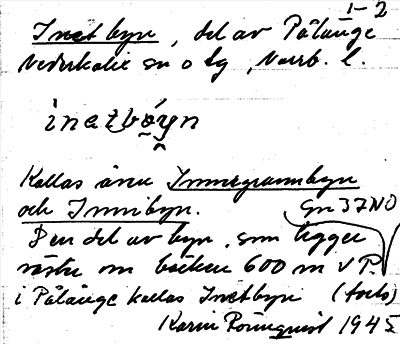 1-2
Inetbyn, del av Pålänge
Nederkalix sn o tg, Norrb. l.
inetbýn
Kallas även Innegrannbyn
och Innibyn. Gn 37 NO
Den del av byn, som ligger
väster om bäcken 600 m V P.
i Pålänge kallas Inetbyn (forts)
Karin Rönnqvist 1945